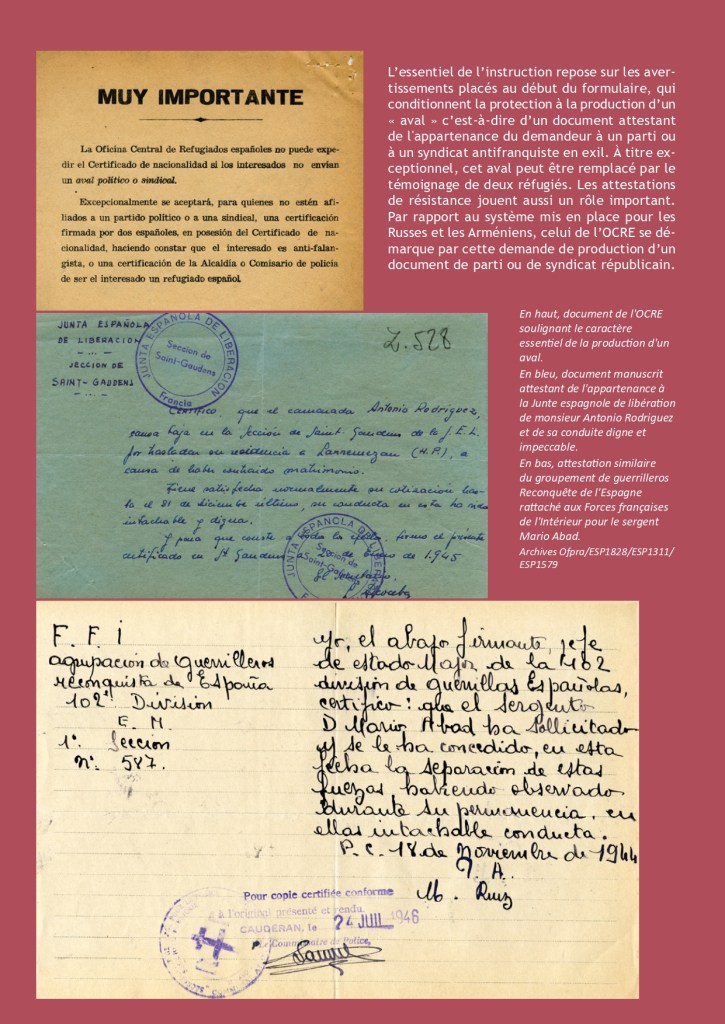 MUY IMPORTANTE
La Oficina Central de Refugiados españoles no puede expe-
dir el Certificado de nacionalidad si los interesados no envian
un aval político o sindical.
Excepcionalmente se aceptará, para quienes no estén afi-
liados a un partido político o a una sindical, una certificación
firmada por dos españoles, en posesión del Certificado de na-
cionalidad, haciendo constar que el interesado es anti-falan-
gista, o una certificación de la Alcaldia o Comisario de policia
de ser el interesado un refugiado español.
L’essentiel de l’instruction repose sur les aver-
tissements placés au début du formulaire, qui
conditionnent la protection à la production d’un
« aval » c’est-à-dire d’un document attestant
de l'appartenance du demandeur à un parti ou
à un syndicat antifranquiste en exil. À titre ex-
ceptionnel, cet aval peut être remplacé par le
témoignage de deux réfugiés. Les attestations
de résistance jouent aussi un rôle important.
Par rapport au système mis en place pour les
Russes et les Arméniens, celui de l’OCRE se dé-
marque par cette demande de production d’un
document de parti ou de syndicat républicain.
JUNTA ESPAÑOLA
DE LIBERACION
SECCION DE
SAINT-GAUDENS
JUNTA ESPAÑOLA DE LIBERACION
Seccion de
Saint-Gaudens
Francia
Z. 528
Certifico, que el camarada Antonio Rodriguez,
causa baja en la Sección de Saint-Gaudens de la J.E.L.
por trasladar su residencia a Lannemezan (H.P.), a
causa de haber contraido matrimonio.
Tiene satisfecha normalmente su cotización has-
ta el 31 de diciembre último, su conducta en esta ha sido
intachable y digna.
Y para que conste a todo los efectos, firmo el presente
certificado en St Gaudens a 20 de Enero de 1.945
El Secretario
JUNTA ESPAÑOLA DE LIBERACION
Seccion de
Saint-Gaudens
En haut, document de l'OCRE
soulignant le caractère
essentiel de la production d'un
aval.
En bleu, document manuscrit
attestant de l’appartenance à
la Junte espagnole de libération
de monsieur Antonio Rodriguez
et de sa conduite digne et
impeccable.
En bas, attestation similaire
du groupement de guerrilleros
Reconquête de l’Espagne
rattaché aux Forces françaises
de l'Intérieur pour le sergent
Mario Abad.
Archives Ofpra/ESP1828/ESP1311/
ESP1579
F. F. I
agrupación de guerrilleros
reconquista de España
102ª Division
E. M.
1ª. Seccion
nº. 587.
yo, el abajo firmante, jefe
de estado Major de la 402
división de guerillas Españolas,
certifico: que el sergento
D Mario Abad ha sollicitado
y se le ha concedido, en esta
fecha la separación de estas
fuerzas habiendo observado
durante su permanencia, en
ellas intachable conducta.
P. C. 18 de Noviembre de 1944
M. Ruiz
Pour copie certifiée conforme
à l'original présenté et rendu
CAUDÉRAN, le 24 JUIL 1946
Le Commissaire de Police,